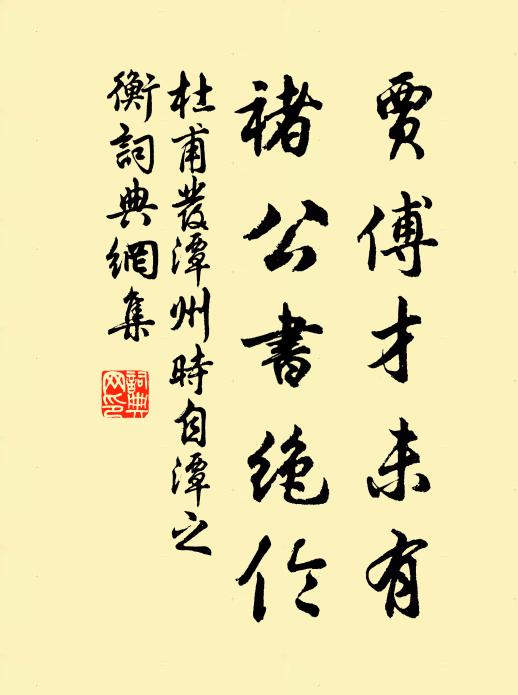 賈傅才未有
褚公書絶倫
杜甫發潭州時自潭之
衡詞典網集
詞典
网印